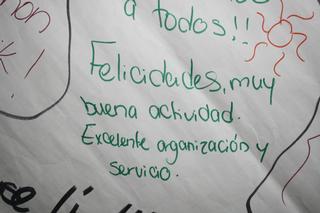 a todos!!
Felicidades, muy
buena actividad.
Excelente organización y
servicio.